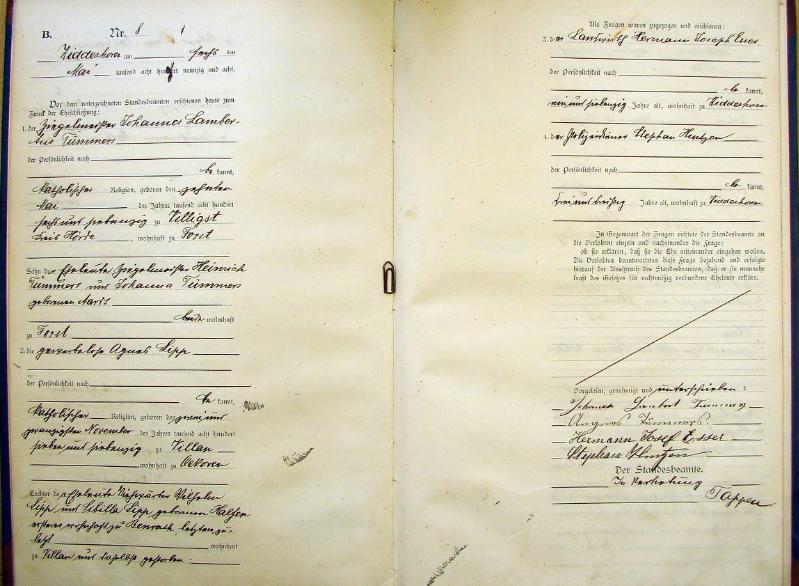 B. Nr. 8
am sechs ten
Mai tausend acht hundert neunzig und acht.
Vor dem unterzeichneten Standesbeamten erschienen heute zum
Zweck der Eheschließung:
1. der Ziegelmeister Johannes Lamber-
tus Tümmers
der Persönlichkeit nach
be kannt,
katholischer Religion, geboren den zehnten
Mai des Jahres tausend acht hundert
sechs und siebenzig zu Villigst
Kreis Hörde, wohnhaft zu Forst
Sohn der Eheleute Ziegelmeister Heinrich
Tümmers und Johanna Tümmers
geborenen
beide wohnhaft
zu Forst
2. die gewerbelose Agnes Lipp
der Persönlichkeit nach
be kannt,
katholischer Religion, geboren den zwei und
zwanzigsten November des Jahres tausend acht hundert
sieben und siebenzig zu
wohnhaft zu
Tochter der Eheleute Wilhelm
Lipp und Sibilla Lipp geborenen
ersterer wohnhaft zu Benrath, letztere zu-
letzt wohnhaft
zu und daselbst gestorben.
Als Zeugen waren zugezogen und erschienen:
3. der Landwirth Hermann Joseph Esser
der Persönlichkeit nach
be kannt,
ein und siebenzig Jahre alt, wohnhaft zu
4. der Polizeidiener Stephan
der Persönlichkeit nach
be kannt,
drei und dreißig Jahre alt, wohnhaft zu
In Gegenwart der Zeugen richtete der Standesbeamte an
die Verlobten einzeln und nacheinander die Frage:
ob sie erklären, daß sie die Ehe miteinander eingehen wollen.
Die Verlobten beantworteten diese Frage bejahend und erfolgte
hierauf der Ausspruch des Standesbeamten, daß er sie nunmehr
kraft des Gesetzes für rechtmäßig verbundene Eheleute erkläre.
Vorgelesen, genehmigt und unterschrieben:
Lambert Tümmers
Agnes Tümmers
Hermann Josef Esser
Stephan
Der Standesbeamte.
In Vertretung
Tappen